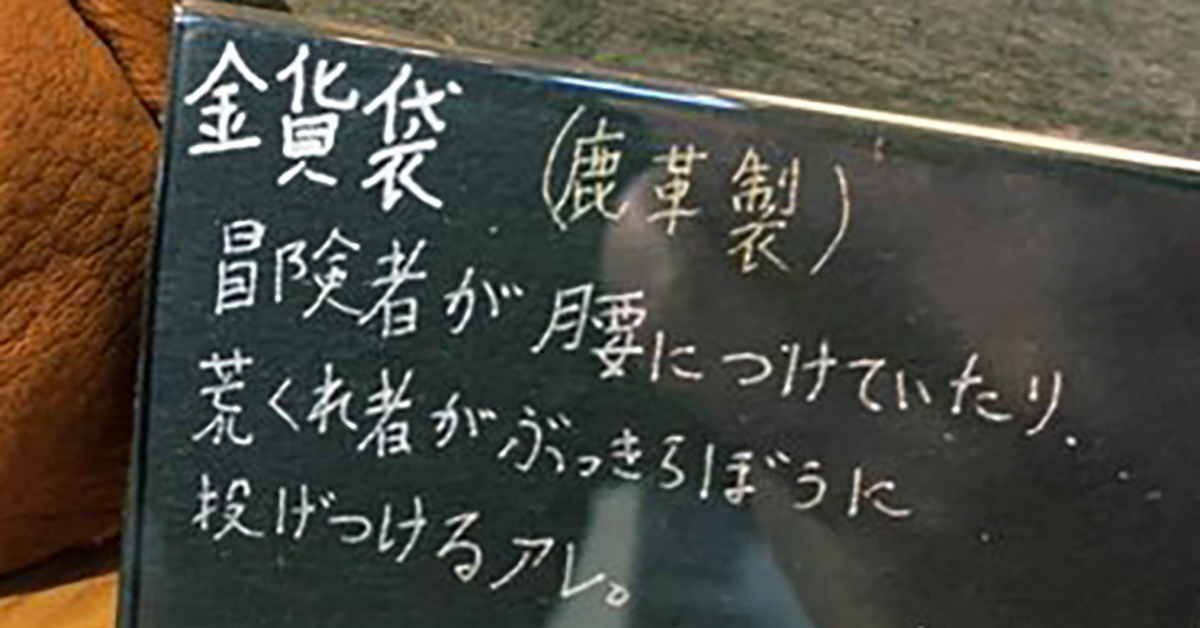 金貨袋 (鹿革製)
冒険者が腰につけていたり、
荒くれ者がぶっきらぼうに
投げつけるアレ。